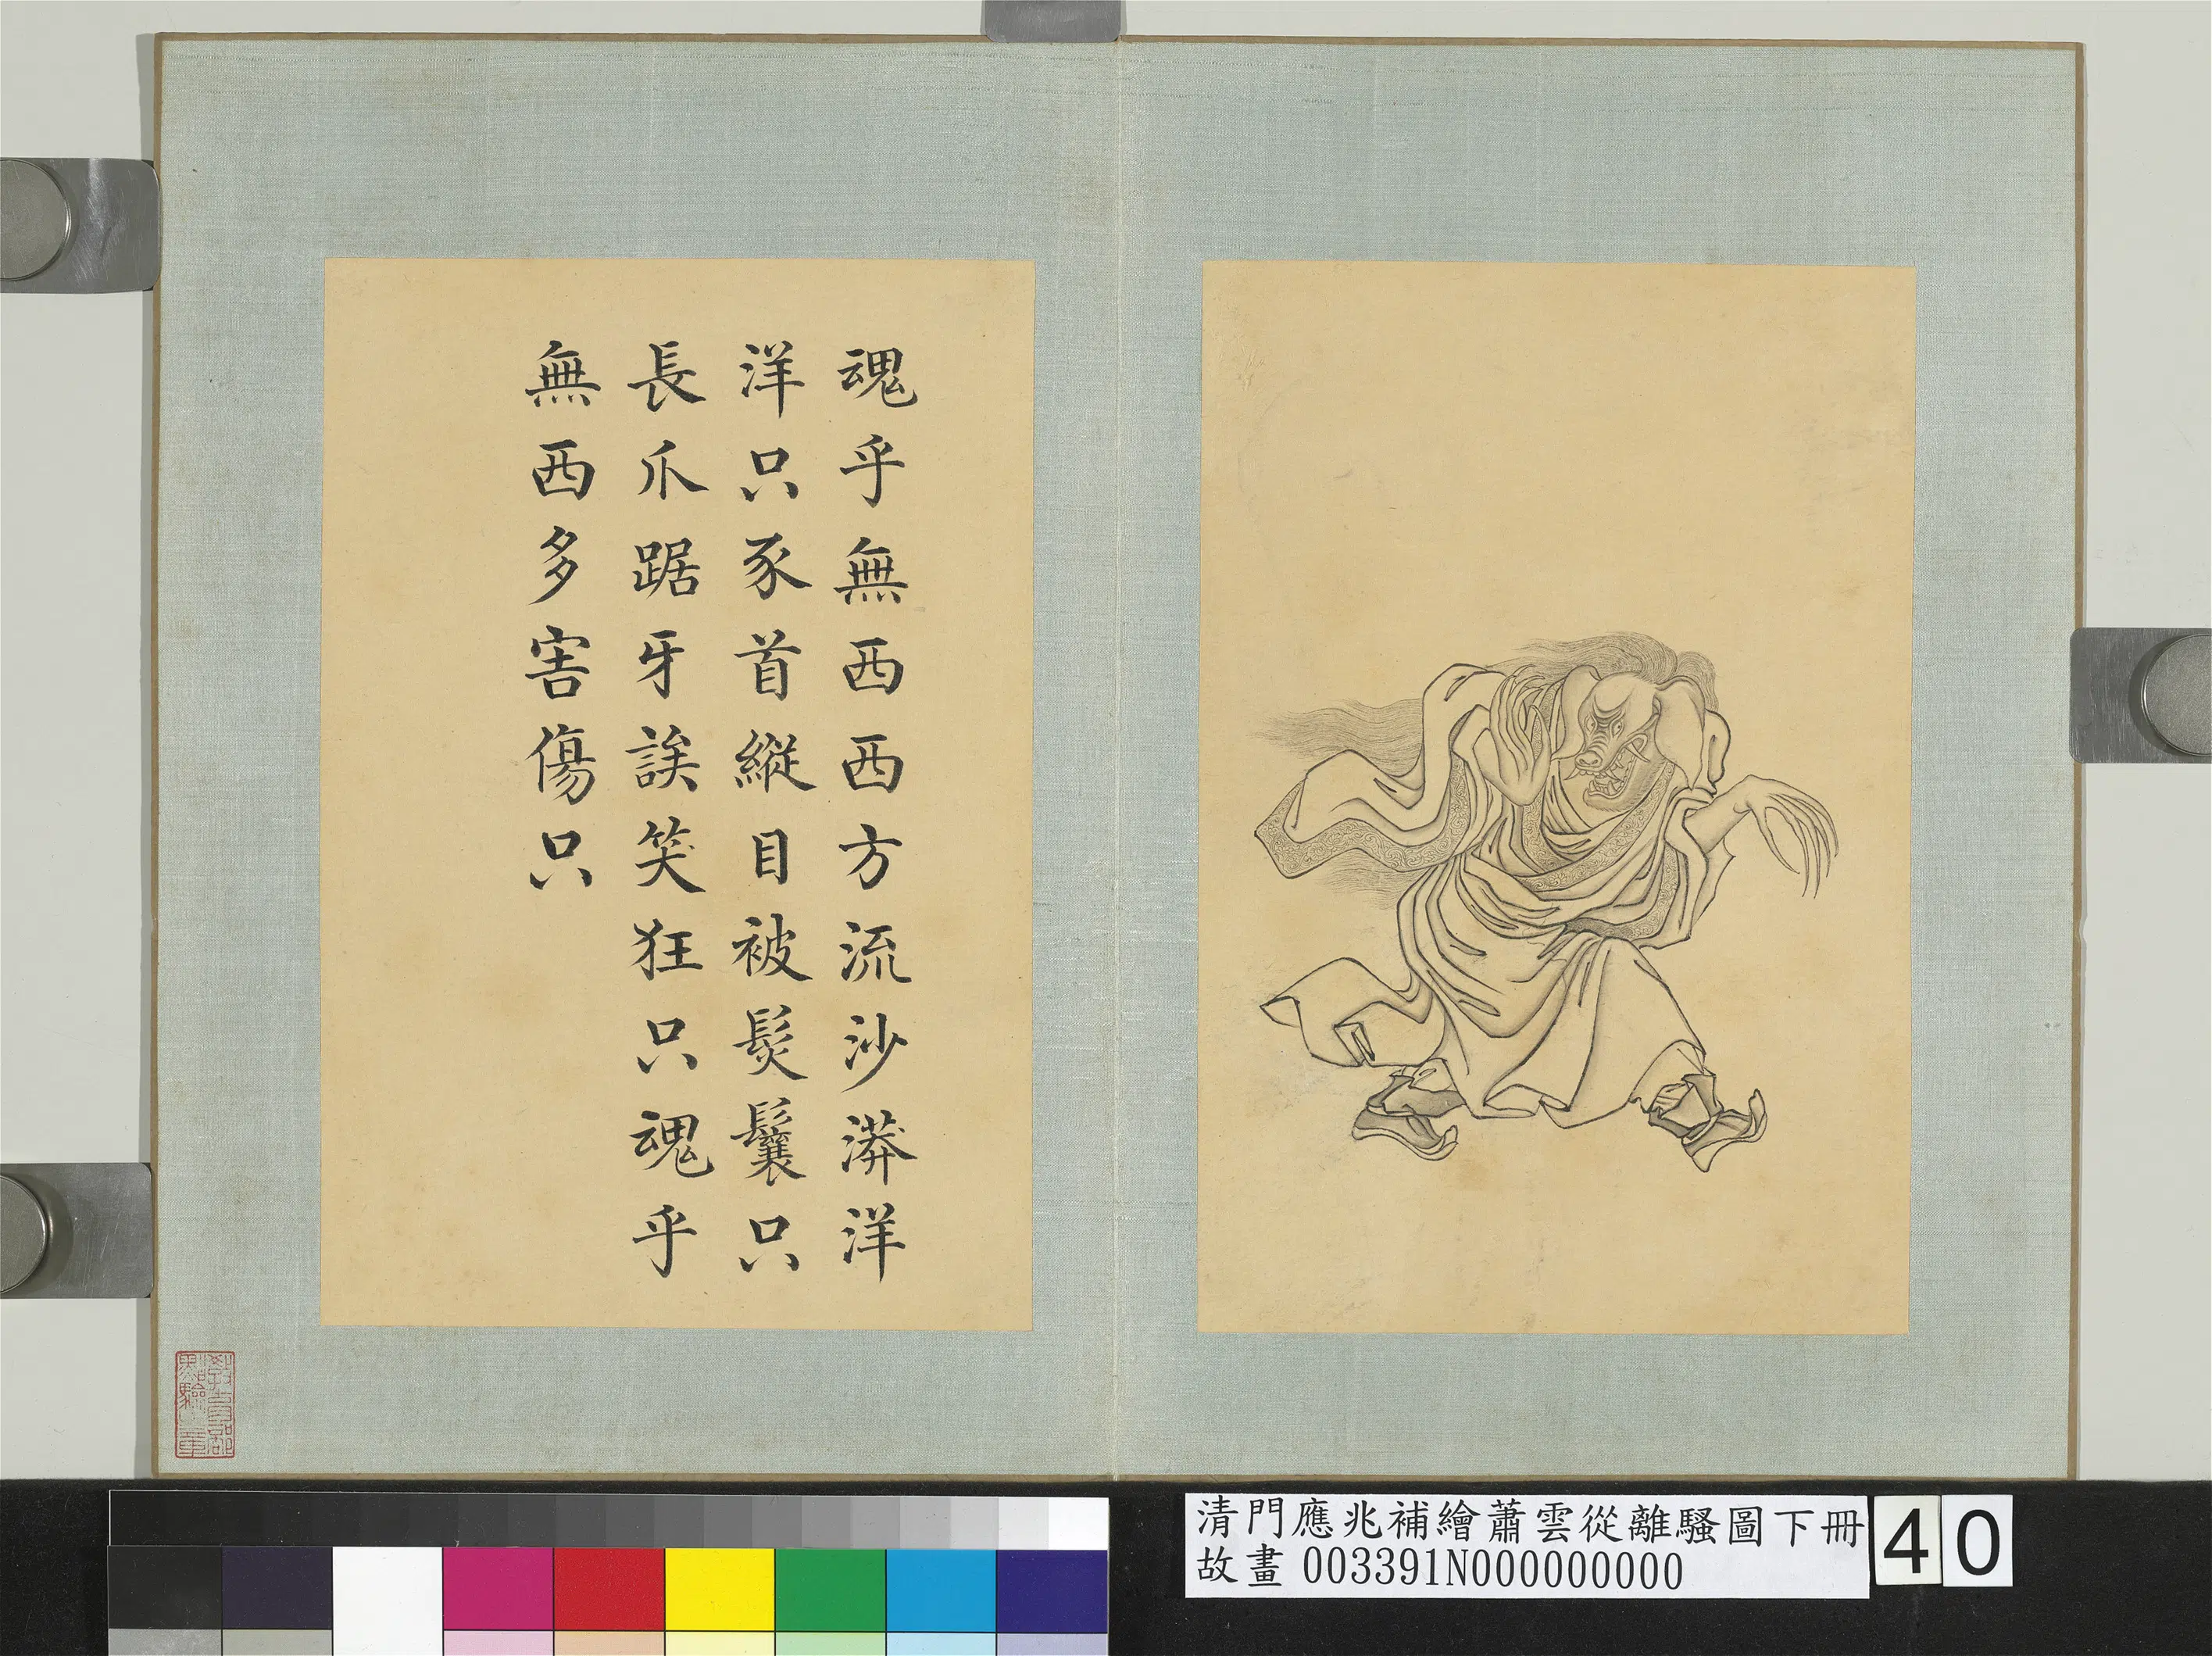 魂乎無西西方流沙漭洋
洋只豕首縱目被髮鬟只
長爪踞牙誒笑狂只魂乎
無西多害傷只
清門應兆補繪蕭雲從離騷圖下冊
故畫 003391N000000000
40